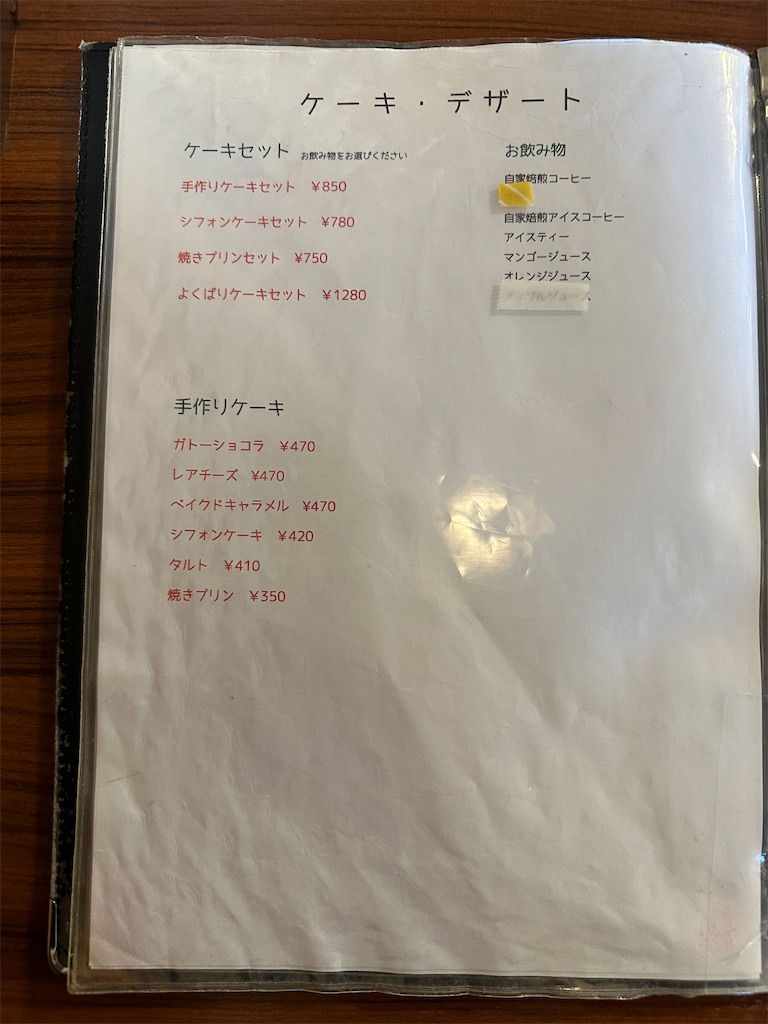 ケーキ・デザート
ケーキセット お飲み物をお選びください
手作りケーキセット ¥850
シフォンケーキセット ¥780
焼きプリンセット ¥750
よくばりケーキセット ¥1280
お飲み物
自家焙煎コーヒー
自家焙煎アイスコーヒー
アイスティー
マンゴージュース
オレンジジュース
手作りケーキ
ガトーショコラ ¥470
レアチーズ ¥470
ベイクドキャラメル ¥470
シフォンケーキ ¥420
タルト ¥410
焼きプリン ¥350